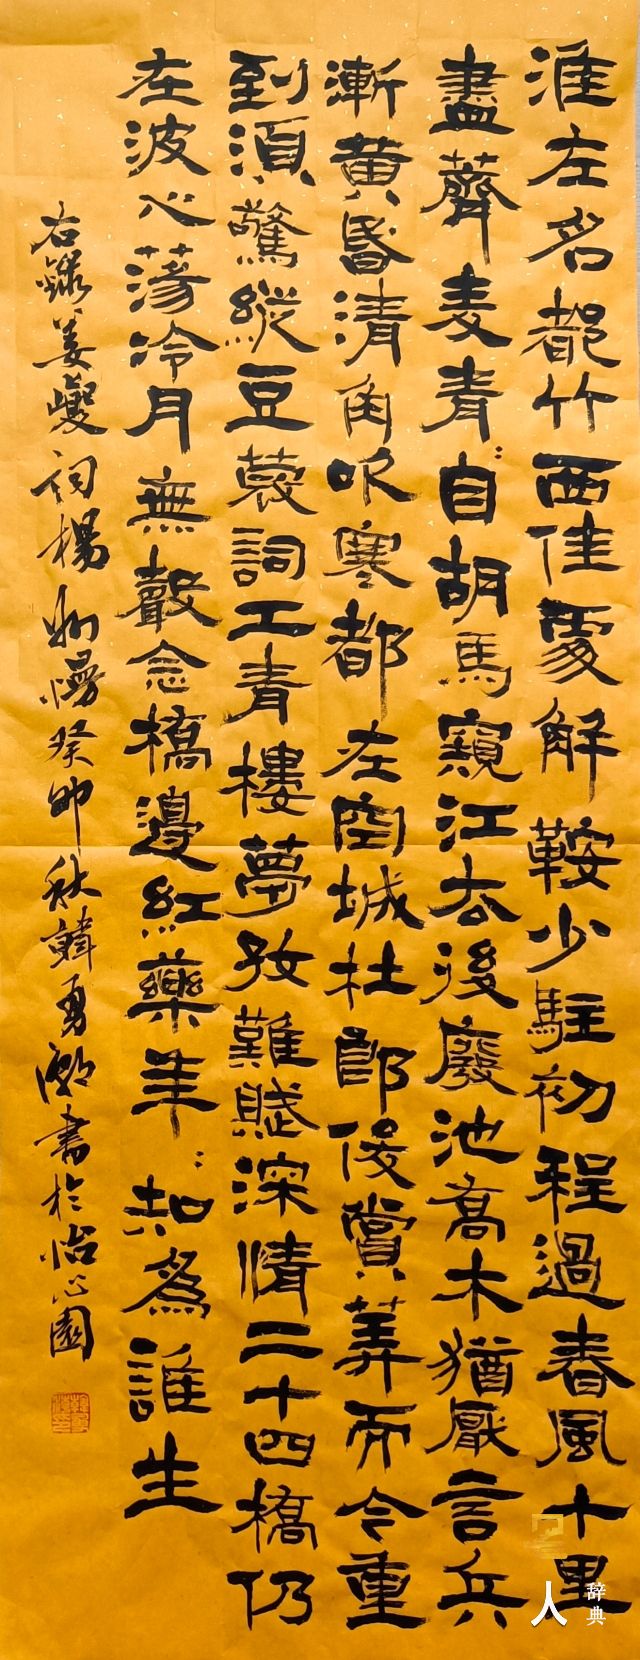 淮左名都竹西佳處解鞍少駐初程過春風十里
盡薺麦青:自胡馬窺江去後廢池喬木猶厭言兵
漸黃昏清角吹寒都在空城杜郎俊賞算而今重
到須驚縱豆蔻詞工青樓夢好難賦深情二十四橋仍
在波心蕩冷月無聲念橋邊紅藥年:知為誰生
右錄姜夔詞揚州慢癸卯秋韓勇潮書於怡心園
人
辞典